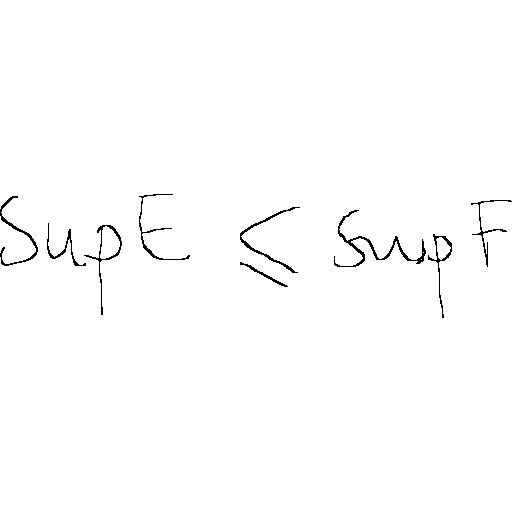 Sup E ≤ sup F